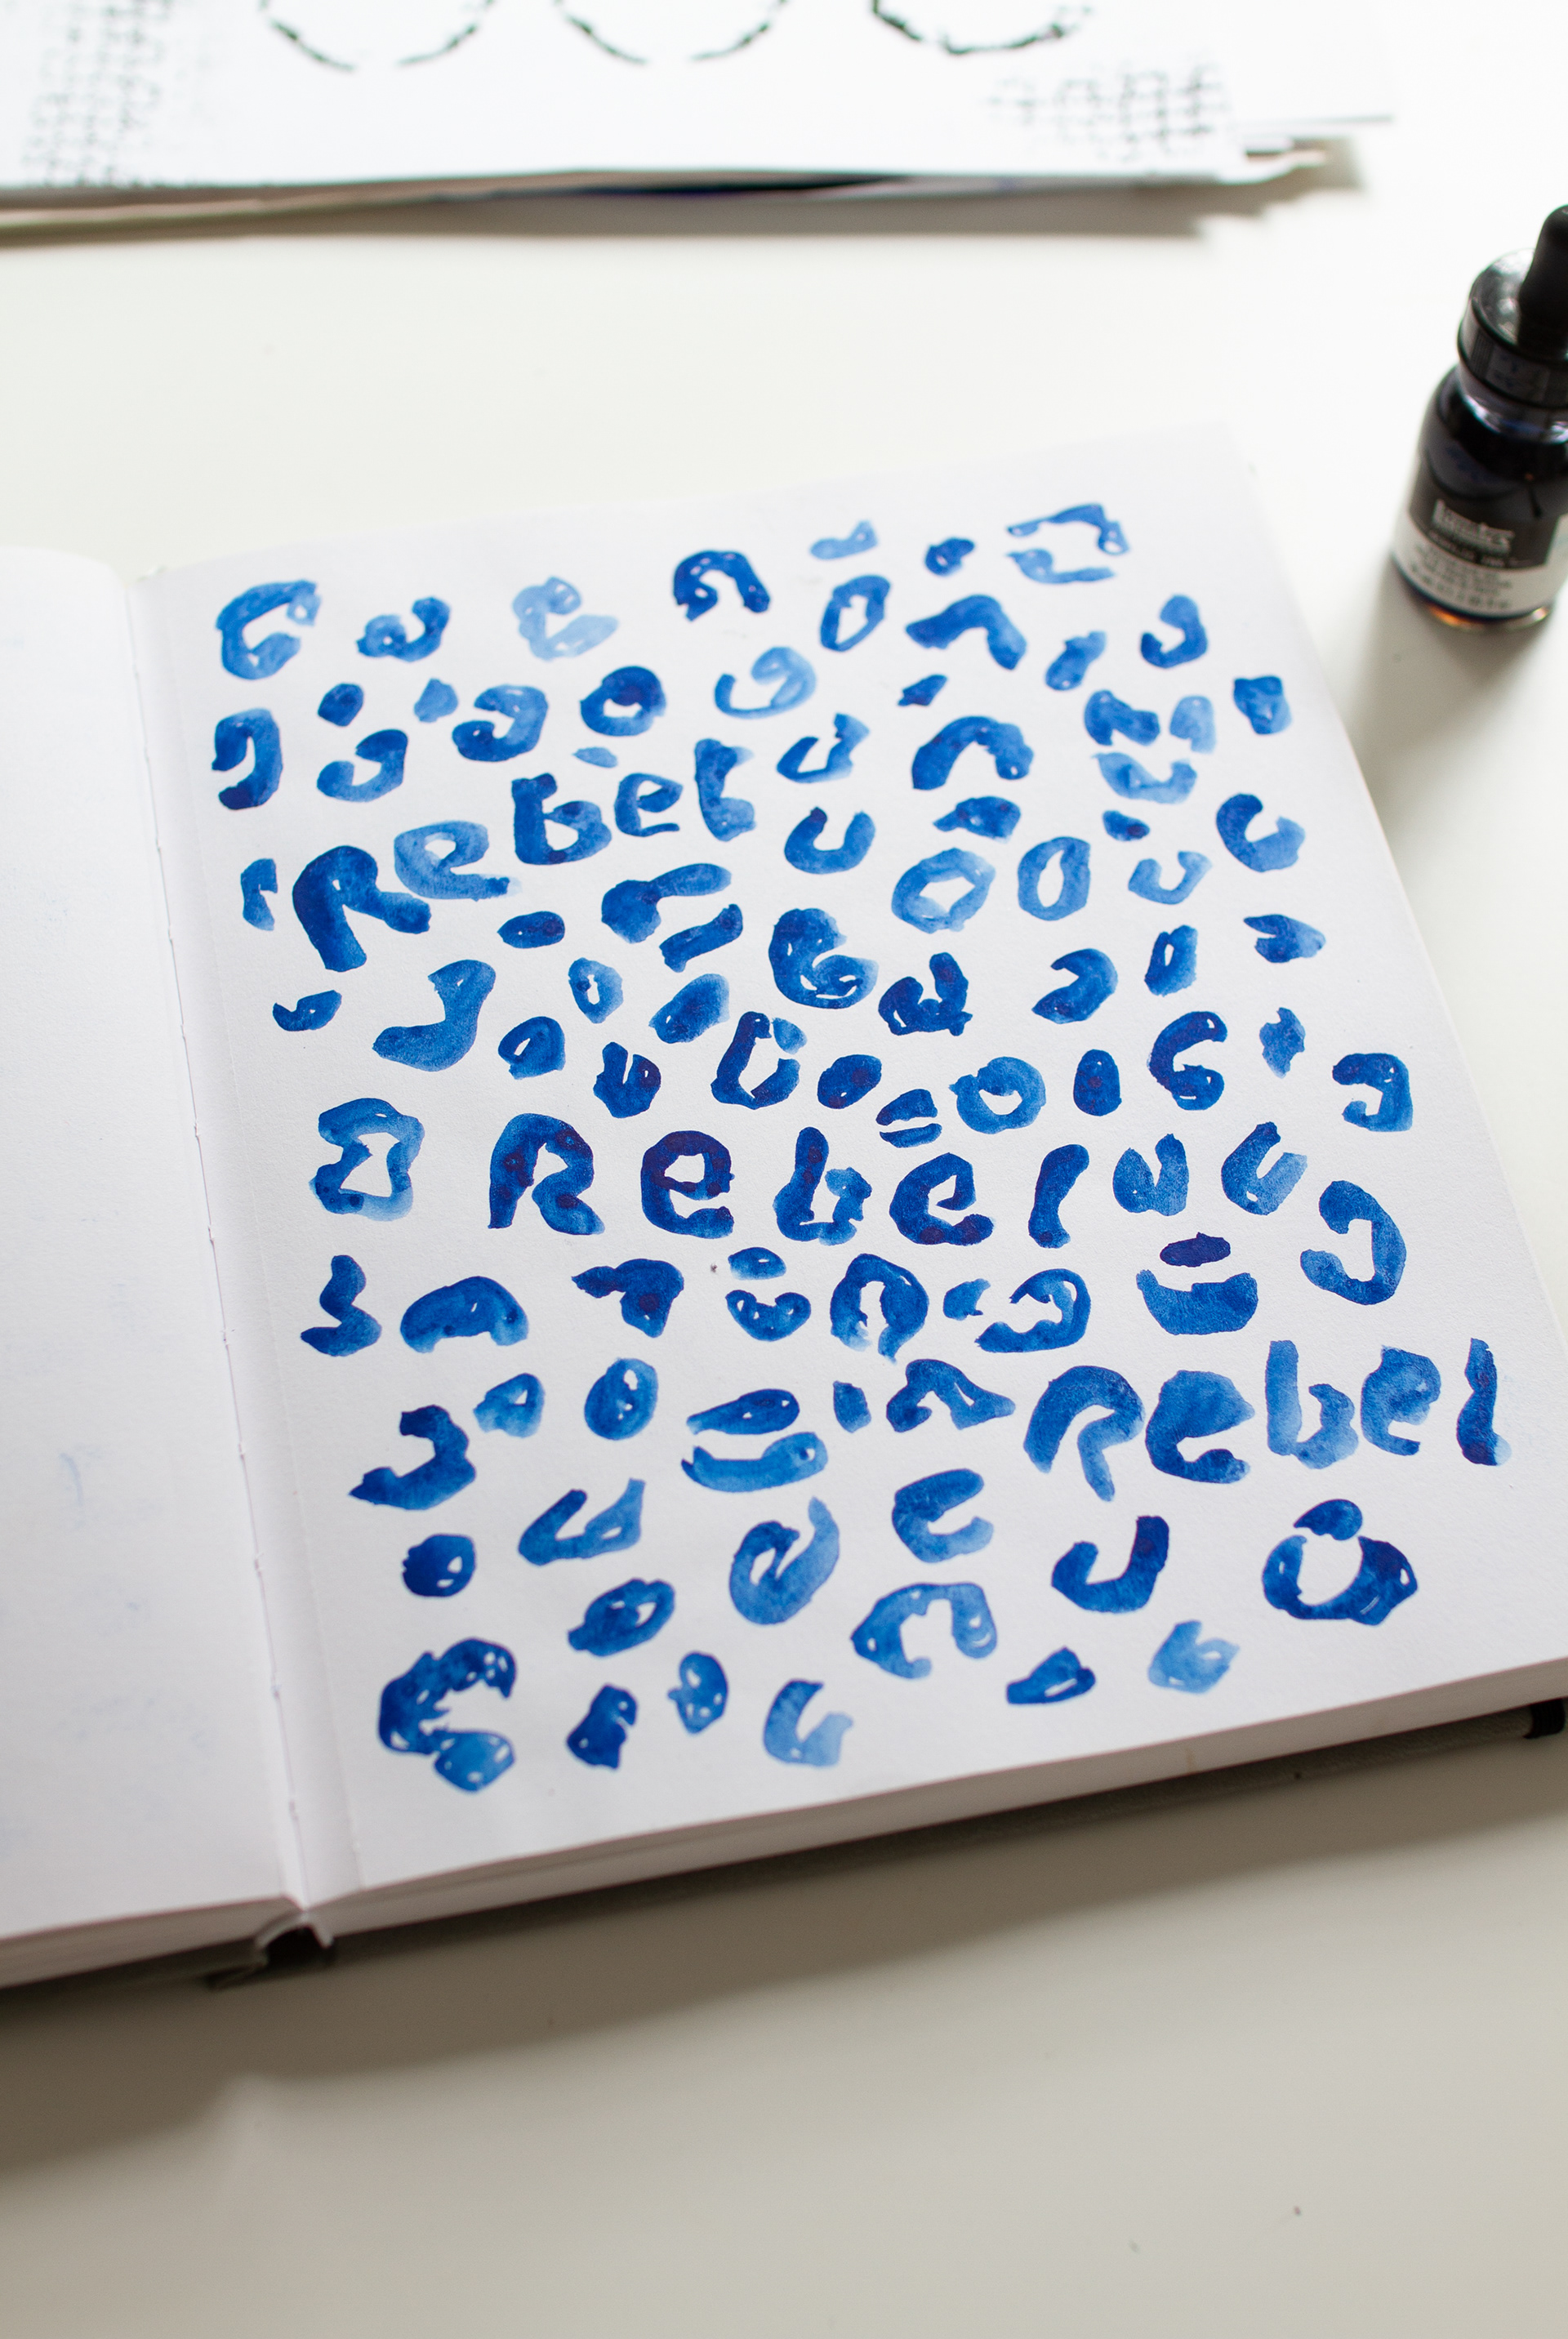 Rebel
Rebel
Rebel